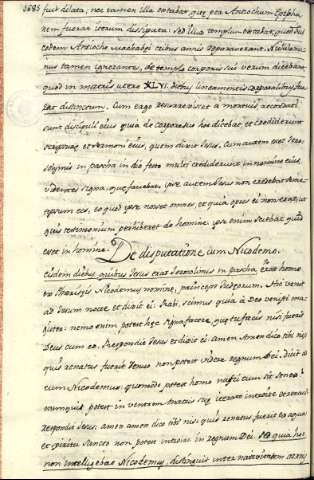 fuit delata, nec tamen illa extabat, quę per Antiochum Epipha
nem fuerat iterum dissipata: sed illud templum extabat, quod sub
eodem Antiocho machabęi tribus annis reparaverant. Nicodemus
tamen ignorante, de templo corporis sui verum dicebat
quod in matris utero XLVI. diebus lineamentis corporalibus fue
rat distinctum. Cum ergo resurrexisset a mortuis, recordati
sunt discipuli eius quia de corpore suo hoc dicebat, et crediderunt
scripturę, et sermoni eius, quem dixit Jesus. Cum autem esset Jero
solymis in pascha in die festo multi crediderunt in nomine eius,
videntes signa, quę faciebat, ipse autem Jesus non credebat semet
ipsum eis, eo quod ipse nosset omnes, et quia opus ei non erat, ut
quis testimonium perhiberet de homine, ipse enim sciebat quid
esset in homine.
De disputatione cum Nicodemo.
Eisdem diebus, quibus Jesus erat Jerosolimis in pascha, erat homo
ex Pharisęis Nicodemus nomine, princeps Judęorum. Hic venit
ad Jesum nocte et dixit ei. Rabi, scimus quia a Deo venisti ma
gister: nemo enim potest hęc signa facere, quę tu facis nisi fuerit
Deus cum eo. Respondit Jesus et dixit ei: amen Amen dico tibi nisi
quis renatus fuerit denuo non potest videre regnum Dei. Dicit ad
eum Nicodemus. quomodo potest homo nasci cum sit senex?
numquid potest in ventrem matris suę iterum introire et renasci
respondit Jesus. amen amen dico tibi nisi quis renatus fuerit ex aqua
et spiritu sancto non potest introire in regnum Dei. Et quia hęc
non intelligebat Nicodemus, distinguit inter nativitatem